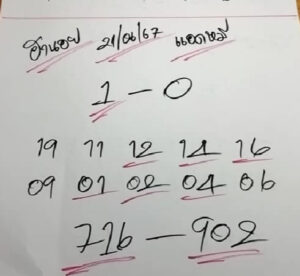 ฮานอย 21/06/67 แอดหมี
1 - 0
19 11 12 14 16
09 01 02 04 06
716 - 902